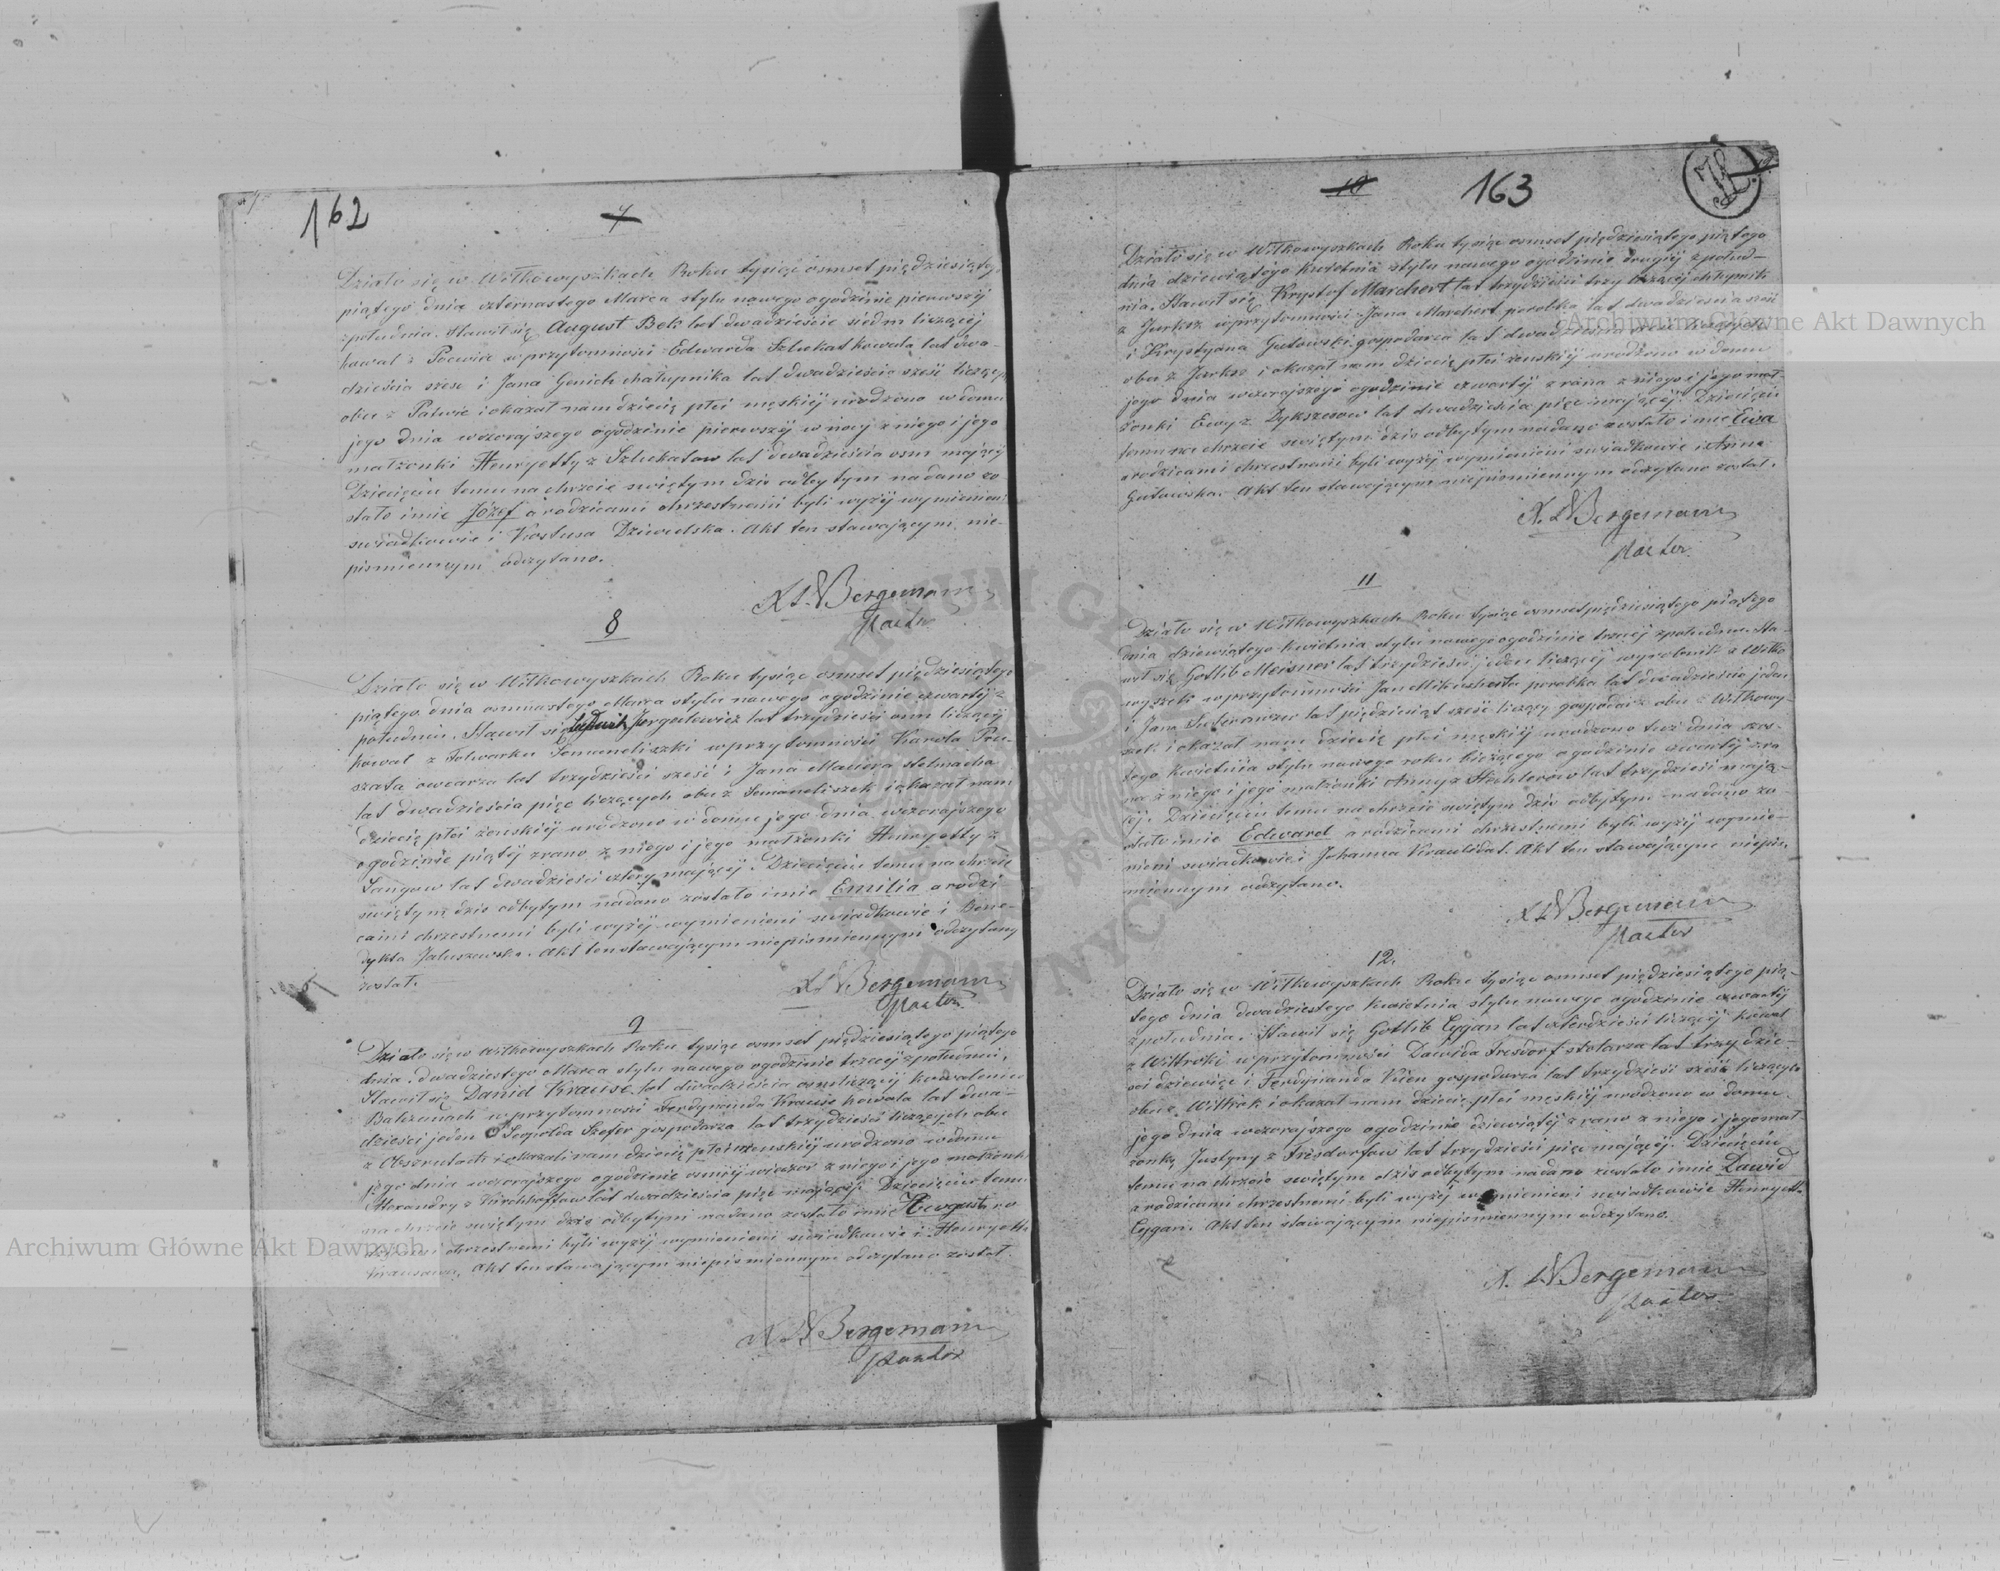 162
7
Działo się w Wiłkowyszkach Roku tysiąc osmset pięćdziesiątego
piątego dnia czternastego Marca stylu nowego ogodzinie pierwszéj
zpołudnia. Stawił się August Bek lat dwadzieścia siedm liczący
kowal z w przytomności Edwarda Szlukat kowala lat dwa-
dzieścia sześć i Jana Genich chałupnika lat dwadzieścia sześć liczących
obu z i okazał nam dziecię płci męskiéj urodzone w domu
jego dnia wczorajszego ogodzinie pierwszéj w nocy z niego i jego
małżonki Henryetty z Szlukatow lat dwadzieścia osm mającéj
Dziecięciu temu na chrzcie swiętym dziś odbytym nadano zo-
stało imie Józef a rodzicami chrzestnemi byli wyżéj wymienieni
swiadkowie i Dziewulska. Akt ten stawającym nie-
pismiennym odczytano.
X L Bergemann
Pastor
8
Działo się w Wiłkowyszkach Roku tysiąc osmset pięćdziesiątego
piątego dnia osmnastego Marca stylu nowego ogodzinie czwartéj z
południa. Stawił się Ludwik lat trzydzieści osm liczący
kowal z Folwarku w przytomności Karola
owczarza lat trzydzieści sześć i Jana stelmacha
lat dwadzieścia pięć liczących obu z i okazał nam
dziecię płci żenskiéj urodzone w domu jego dnia wczorajszego
ogodzinie piątéj zrana z niego i jego małżonki Henryetty z
Langow lat dwadzieścia cztery mającéj. Dziecięciu temu na chrzcie
swiętym dziś odbytym nadano zostało imie Emilia a rodzi-
cami chrzestnemi byli wyżéj wymienieni swiadkowie i Bene-
dykta. Akt ten stawającym niepismiennym odczytany
został.
X L Bergemann
Pastor
9
Działo się w Wiłkowyszkach Roku tysiąc osmset pięćdziesiątego piątego
dnia dwadziestego Marca stylu nowego ogodzinie trzeciéj zpołudnia.
Stawił się Daniel Krause lat dwadzieścia osm liczący
w przytomności Ferdynanda Krause kowala lat dwa-
dzieści jeden i Leopolda Szefer gospodarza lat trzydzieści liczących obu
z i okazali nam dziecię płci żenskiéj urodzone w domu
jego dnia wczorajszego ogodzinie osméj wieczor z niego i jego małżonki
z lat dwadzieścia pięć mającéj. Dziecięciu temu
na chrzcie swiętym dziś odbytym nadano zostało imie Augustyna
chrzestnemi byli wyżéj wymienieni swiadkowie i Henryetta
Krausowa. Akt ten stawającym niepismiennym odczytano został.
X L Bergemann
Pastor
10
163
Działo się w Wiłkowyszkach Roku tysiąc osmset pięćdziesiątego piątego
dnia dziewiątego kwietnia stylu nowego ogodzinie drugiéj zpołud-
nia. Stawił się Krystof Marchert lat trzydzieści trzy liczący chłupnik
z w przytomności Jana Marchert parobka lat dwadzieścia
i Krystyana Gutowski gospodarza lat
obu z i okazał nam dziecię płci żenskiéj urodzone w domu
jego dnia wczorajszego ogodzinie czwartéj zrana z niego i jego mał-
żonki Ewy z lat dwadzieścia pięć mającéj. Dziecięciu
temu na chrzcie swiętym dziś odbytym nadano zostało imie Ewa
a rodzicami chrzestnemi byli wyżéj wymienieni swiadkowie i Anna
Gutowska. Akt ten stawającym niepismiennym odczytano został.
X. L Bergemann
Pastor
11
Działo się w Wiłkowyszkach Roku tysiąc osmset pięćdziesiątego piątego
dnia dziewiątego kwietnia stylu nowego ogodzinie trzeciéj zpołudnia. Sta-
wił się Gotlib Meisner lat trzydzieści jeden liczący wyrobnik z Wiłko-
wyszek w przytomności Jan parobka lat dwadzieścia jeden
i Jana lat pięćdziesiąt sześć liczący gospodarz obu z Wiłkowy-
szek i okazał nam dziecię płci męskiéj urodzone dnia szos-
tego kwietnia stylu nowego roku bieżącego ogodzinie czwartéj zra-
na z niego i jego małżonki Anny z lat trzydzieści mają-
céj. Dziecięciu temu na chrzcie swiętym dziś odbytym nadano zo-
stało imie Edward a rodzicami chrzestnemi byli wyżéj wymie-
nieni swiadkowie i Johanna. Akt ten stawającym niepis-
miennym odczytano.
X L Bergemann
Pastor
12.
Działo się w Wiłkowyszkach Roku tysiąc osmset pięćdziesiątego pią-
tego dnia dwadziestego kwietnia stylu nowego ogodzinie czwartéj
zpołudnia. Stawił się Gotlib Cygan lat czterdzieści liczący kowal
z w przytomności Dawida Fresdorf stolarza lat trzydzie-
sci dziewięć i Ferdynanda gospodarza lat trzydzieści sześć liczących
obu z i okazał nam dziecię płci męskiéj urodzone w domu
jego dnia wczorajszego ogodzinie dziewiątéj zrana z niego i jego mał-
żonki Justyny z Fresdorfow lat trzydzieści pięć mającéj. Dziecięciu
temu na chrzcie swiętym dziś odbytym nadano zostało imie Dawid
a rodzicami chrzestnemi byli wyżéj wymienieni swiadkowie Henryetta
Cygan. Akt ten stawającym niepismiennym odczytano.
X. L Bergemann
Pastor
Archiwum Główne Akt Dawnych
Archiwum Główne Akt Dawnych